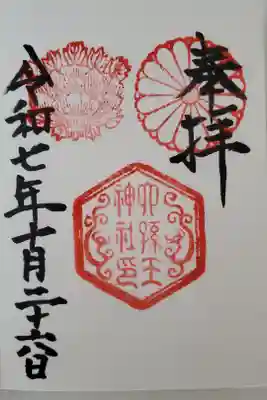 奉拝
六孫王
神社印
令和七年十月二十六日